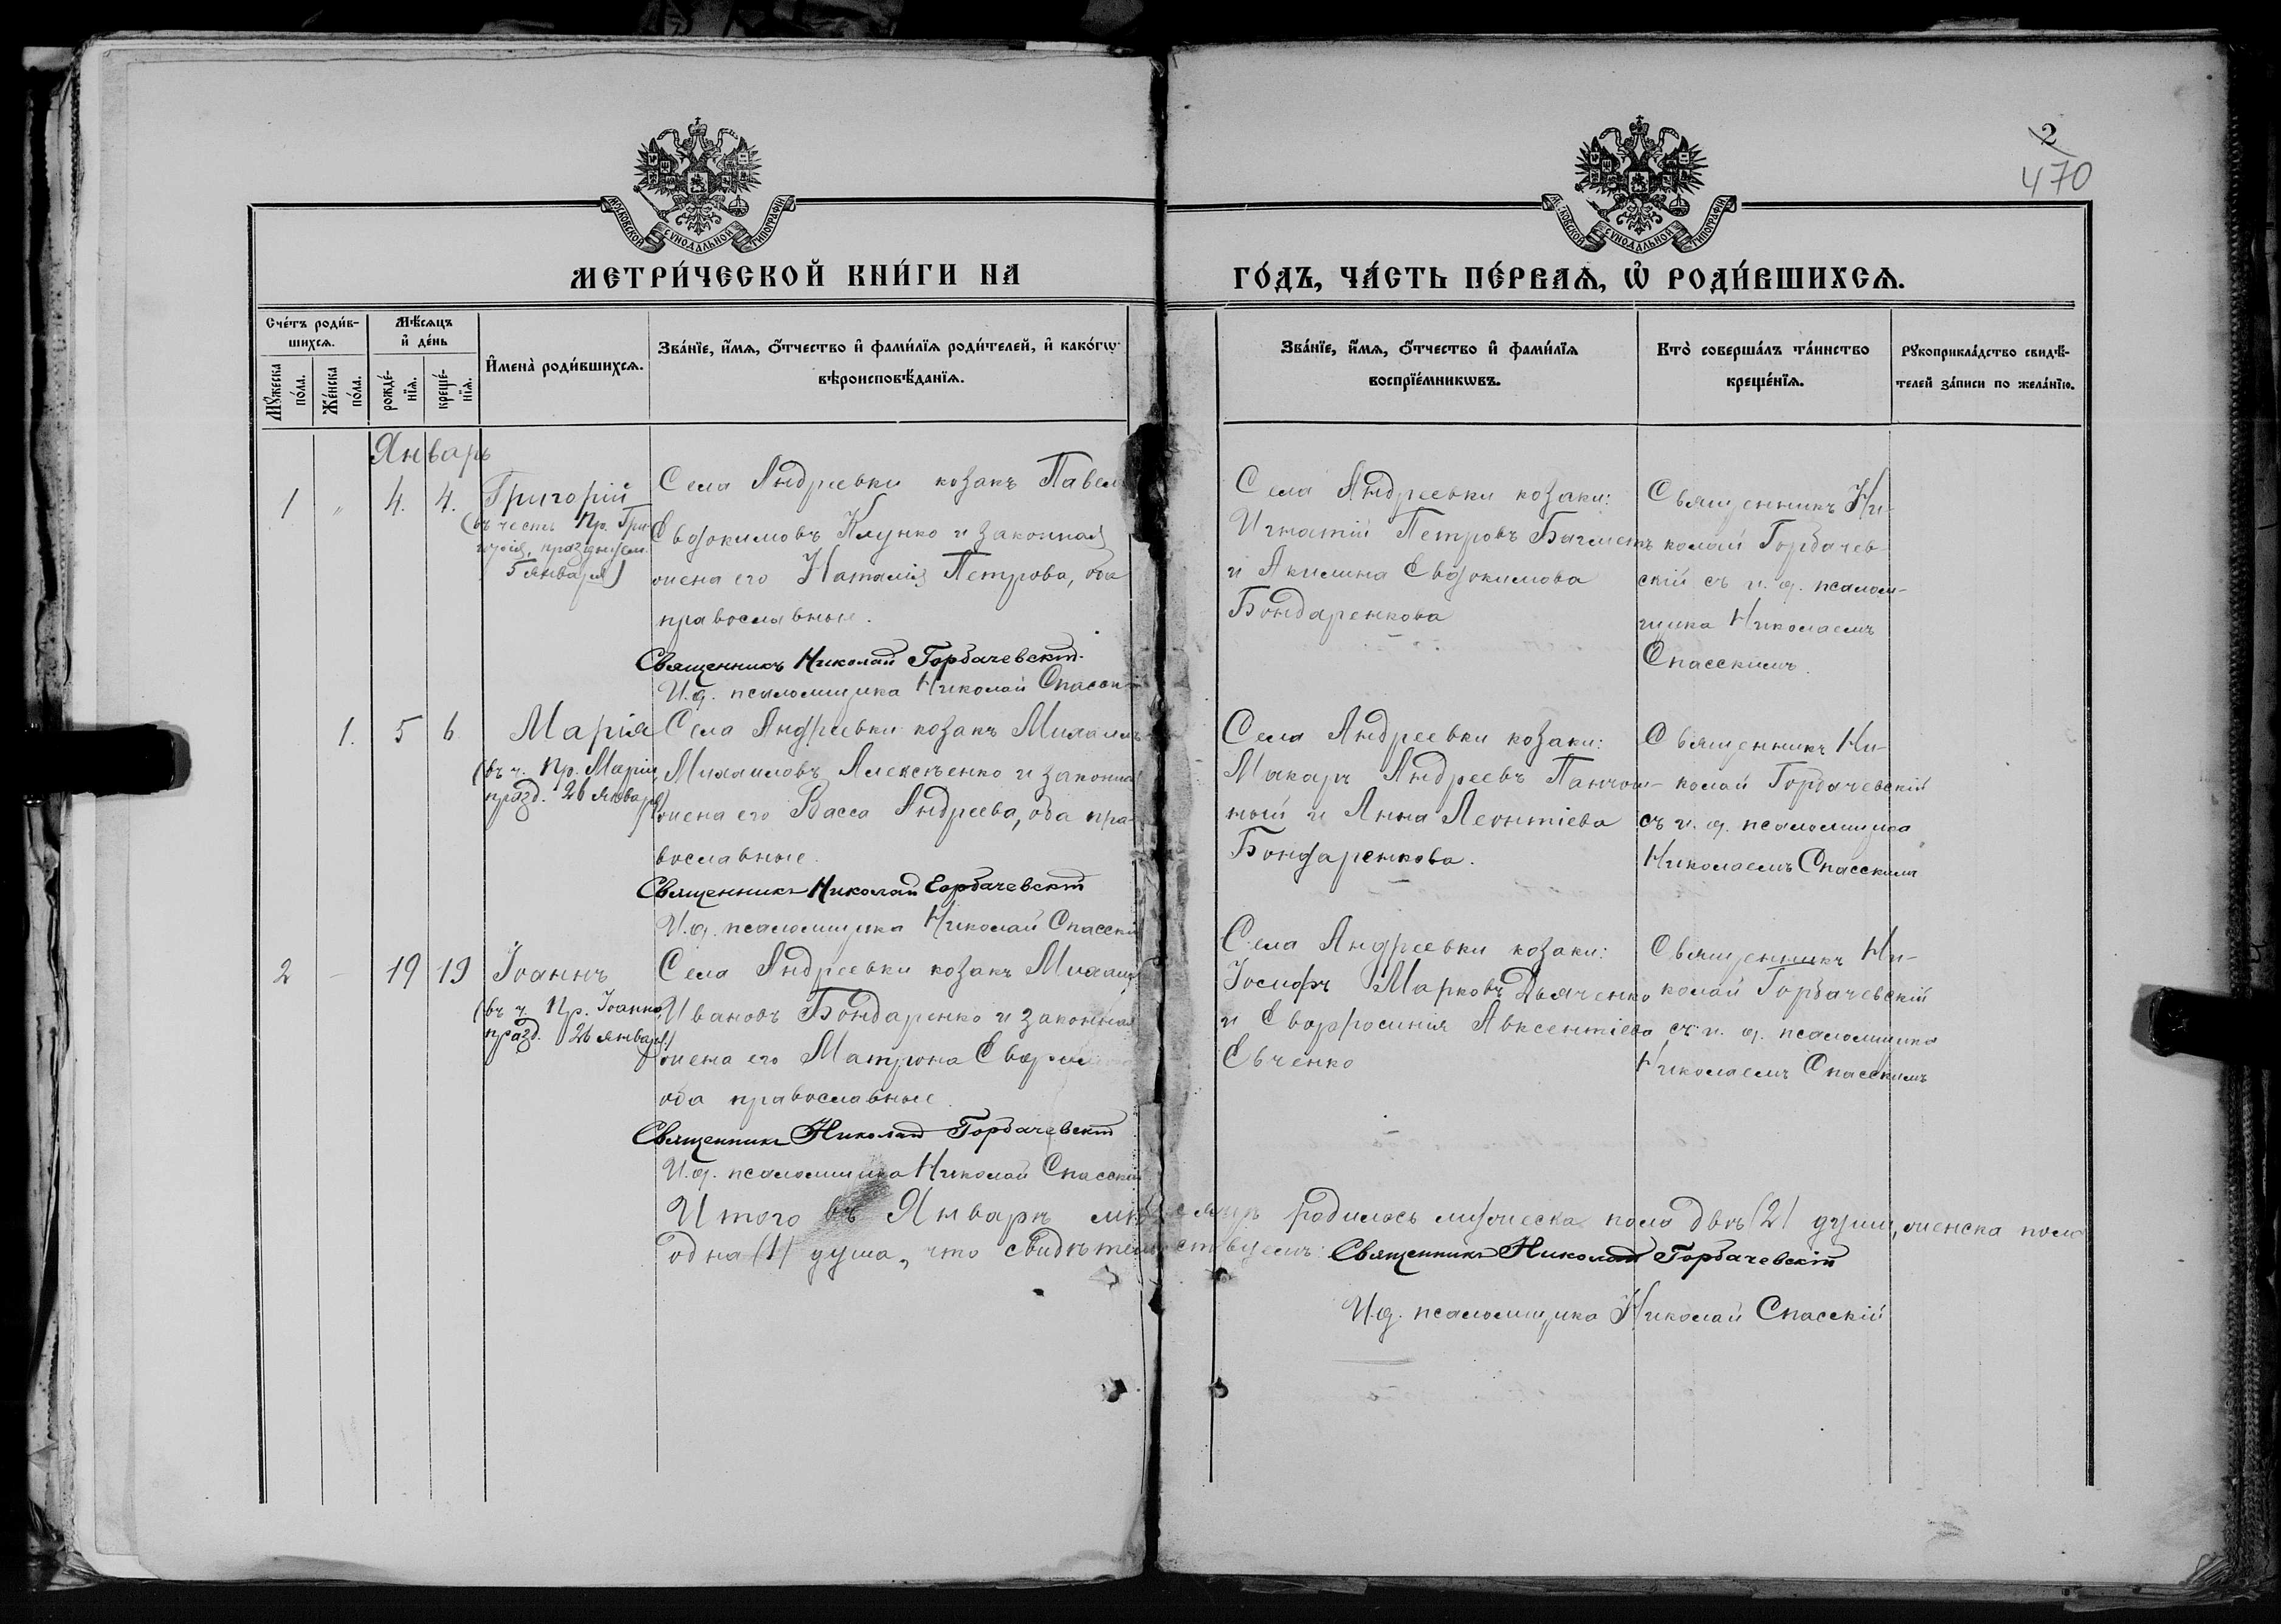 2
470
МОСКОВСКОЙ СѴНОДАЛЬНОЙ ТИПОГРАФІИ
МОСКОВСКОЙ СѴНОДАЛЬНОЙ ТИПОГРАФІИ
МЕТРИ́ЧЕСКОЙ КНИ́ГИ НА
ГО́ДЪ, ЧА́СТЬ ПЕ́РВАѦ, Ѡ҆ РОДИ́ВШИХСѦ.
Сче́тъ роди́в-
шихсѧ.
Мѣ́сѧцъ
и҆ де́нь
Мꙋ́жеска
по́ла.
Же́нска
по́ла.
рожде́-
нїѧ.
креще́-
нїѧ.
И҆мена̀ роди́вшихсѧ.
Зва́нїе, и҆́мѧ, ѻ҆́тчество и҆ фами́лїѧ роди́телей, и҆ како́гѡ
вѣроисповѣ́данїѧ.
Зва́нїе, и҆́мѧ, ѻ҆́тчество и҆ фами́лїѧ
воспрїе́мникѡвъ.
Кто̀ соверша́лъ та́инство
креще́нїѧ.
Рꙋкоприкла́дство свидѣ́-
телей за́писи по жела́нїю.
Январь
1 " 4. 4. Григорій
(въ честь Пр. Гри-
горія, празднуем.
5 января)
Села Андреевки козакъ Павелъ
Евдокимовъ Клунко и законная
жена его Наталія Петрова, оба
православные.
Священникъ Николай Горбачевскій.
И.д. псаломщика Николай Спасскій
Села Андреевки козаки:
Игнатій Петровъ Багметъ
и Акилина Евдокимова
Бондаренкова
Священникъ Ни-
колай Горбачев-
скій съ и. д. псалом-
щика Николаемъ
Спасскимъ.
1. 5 6 Марія
(въ ч. Пр. Маріи
празд. 26 января)
Села Андреевки козакъ Михаилъ
Михаиловъ Алексѣенко и законная
жена его Васса Андреева, оба пра-
вославные.
Священникъ Николай Горбачевскій
И.д. псаломщика Николай Спасскій
Села Андреевки козаки:
Макаръ Андреевъ
и Анна Леонтіева
Бондаренкова.
Священникъ Ни-
колай Горбачевскій
съ и. д. псаломщика
Николаемъ Спасскимъ
2 - 19 19 Іоаннъ
(въ ч. Пр. Іоанна
празд. 26 января)
Села Андреевки козакъ Михаилъ
Ивановъ Бондаренко и законная
жена его Матрона
оба православные.
Священникъ Николай Горбачевскій
И.д. псаломщика Николай Спасскій
Села Андреевки козаки:
Іосифъ Марковъ Дьяченко
и Евфросинія Авксентіева
Евченко
Священникъ Ни-
колай Горбачевскій
съ и. д. псаломщика
Николаемъ Спасскимъ
Итого въ Январѣ мѣсяцѣ родилось мужеска пола двѣ (2) души, женска пола
одна (1) душа, что свидѣтельствуемъ: Священникъ Николай Горбачевскій
И.д. псаломщика Николай Спасскій